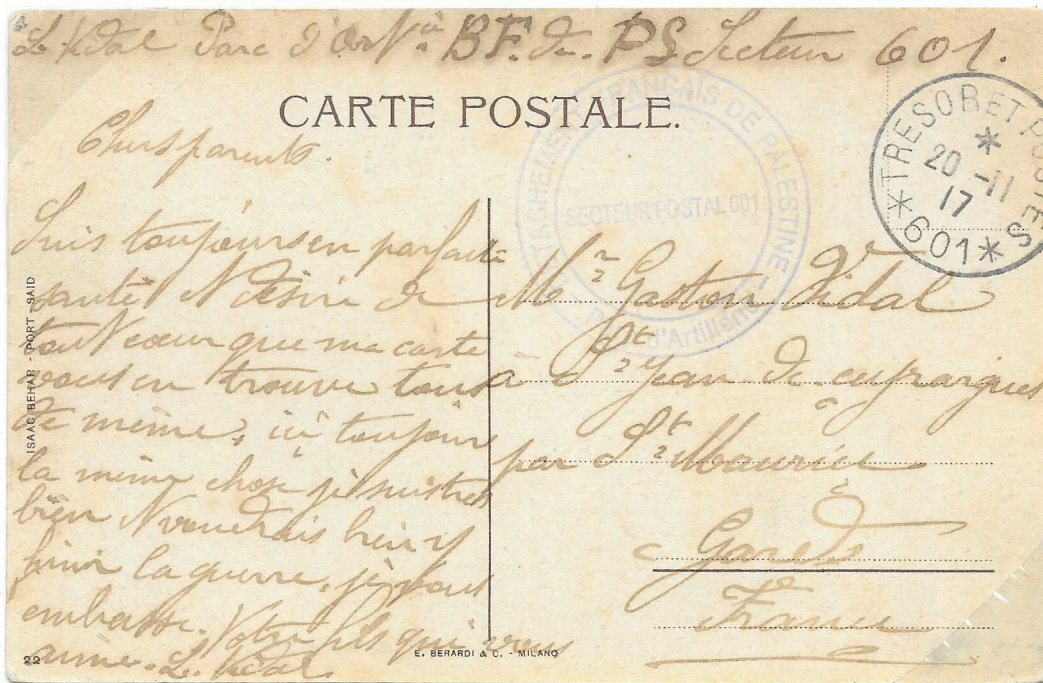 L. Vidal Parc d'Art.ie BF. de PS Secteur 601.
CARTE POSTALE.
DETACHEMENT FRANÇAIS DE PALESTINE
SECTEUR POSTAL 601
Parc d'Artillerie
*TRESOR ET POSTES*
*
20 -11
17
601
Chers parents.
Suis toujours en parfaite
santé & désire de
tout coeur que ma carte
vous en trouve tous
de même, ici toujours
la même chose je suis tres
bien & voudrais bien y
finir la guerre, je vous
embrasse. Votre fils qui vous
aime. L. Vidal.
Mr Gaston Vidal
à St Jean de ceyrargues
par St Maurice
Gard
France
ISAAC BEHAR - PORT-SAID
22
E. BERARDI & C. - MILANO